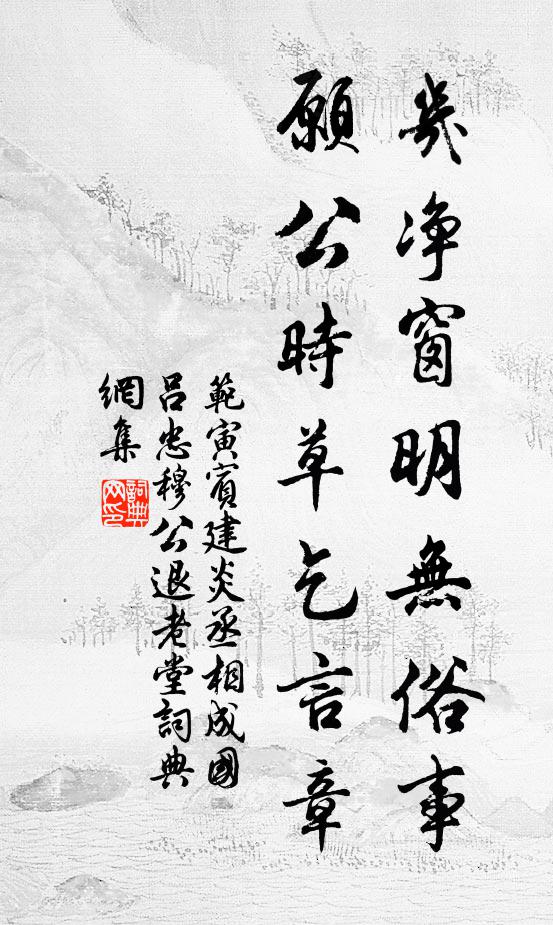 幾净窗明無俗事
願公時草乞言章
範寅賓建炎丞相成國
呂忠穆公退老堂詞典
網集
詞典網印